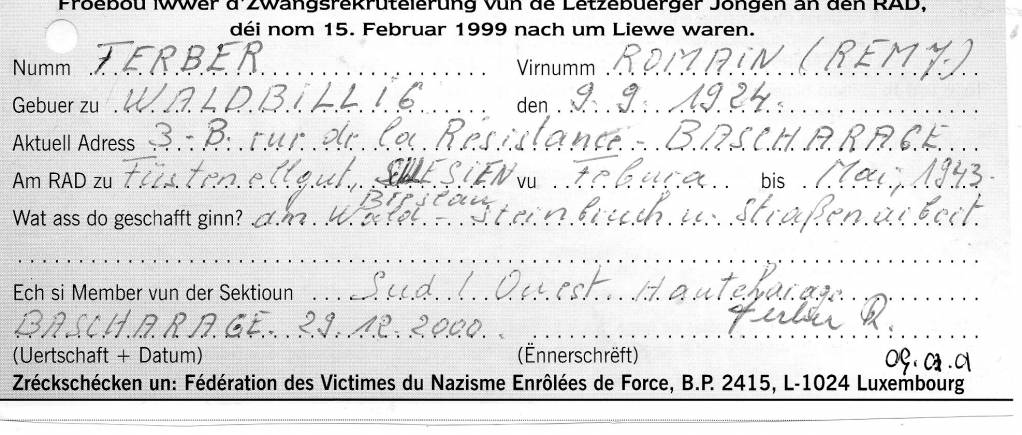 Froebou iwwer d'Zwangsrekrutéierung vun de Lëtzebuerger Jongen an den RAD,
déi nom 15. Februar 1999 nach um Liewe waren.
Numm FERBER Virnumm ROMAIN (REMY)
Gebuer zu WALDBILLIG den 9. 9. 1924.
Aktuell Adress 3-B. rue de la Résistance - BASCHARAGE
Am RAD zu Füstenellgut, SCHLESIEN vu Febura bis Mai, 1943.
Breslau
Wat ass do geschafft ginn? am Wald - Steinbruch u. Straßenarbeit
Ech si Member vun der Sektioun Sud / Ouest. Hautcharage
BASCHARAGE. 29. 12. 2000. Ferber R.
(Uertschaft + Datum) (Ënnerschrëft)
Zréckschécken un: Fédération des Victimes du Nazisme Enrôlées de Force, B.P. 2415, L-1024 Luxembourg